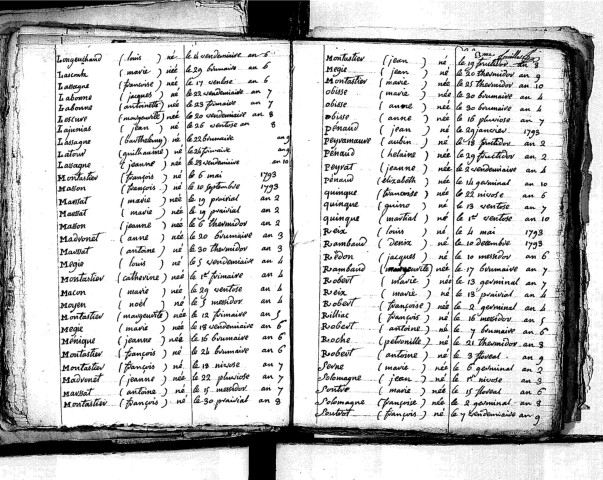 Longeuchaud (louis) né le 4 vendemiaire an 6
Lascoute (marie) née le 29 brumaire an 6
Lassagne (francoise) née le 17 ventose an 6
Labonne (jacques) né le 22 vendemiaire an 7
Labonne (antoinette) née le 23 frimaire an 7
Lescure (marguerite) née le 20 vendemiaire an 8
Lajunias (jean) né le 26 ventose an 8
Lassagne (barthelemy) né le 22 brumaire an 9
Latour (guilhaume) né le 26 frimaire an 9
Lassagne (jeanne) née le 28 vendemiaire an 10
Montastier (françois) né le 6 mai 1793
Masson (françois) né le 10 septembre 1793
Massat (marie) née le 19 prairial an 2
Massat (marie) née le 19 prairial an 2
Masson (jeanne) née le 6 thermidor an 2
Madronet (anne) née le 20 brumaire an 3
Maussat (antoine) né le 30 thermidor an 3
Mégie (louis) né le 5 vendemiaire an 4
Montastier (catherine) née le 1er frimaire an 4
Macon (marie) née le 29 ventose an 4
Moyen (noël) né le 5 messidor an 4
Montastier (marguerite) née le 12 frimaire an 5
Megie (marie) née le 18 vendemiaire an 6
Ménique (jeanne) née le 16 brumaire an 6
Montastier (françois) né le 24 brumaire an 6
Montastier (françois) né le 18 nivose an 7
Madronet (jeanne) née le 22 pluviose an 7
Massat (antoine) né le 15 messidor an 7
Montastier (françois) né le 30 prairial an 8
Montastier (jean) né le 19 fructidor an 8
Megie (jean) né le 20 thermidor an 9
Montastier (marie) née le 25 thermidor an 10
obisse (marie) née le 30 brumaire an 4
obisse (anne) née le 30 brumaire an 4
obisse (anne) née le 16 pluviose an 7
Pénaud (jean) né le 29 janvier 1793
Peyramaure (aubin) né le 18 fructidor an 2
Pénaud (helaine) née le 29 fructidor an 2
Peyrat (jeanne) née le 2 vendemiaire an 4
Pénaud (elizabeth) née le 14 germinal an 10
quinque (francoise) née le 22 nivose an 6
quinque (guino) né le 13 ventose an 7
quinque (martial) né le 1er ventose an 10
Reix (louis) né le 4 mai 1793
Rambaud (denix) né le 10 decembre 1793
Reddon (jacques) né le 10 messidor an 6
Rambaud (marguerite) née le 17 brumaire an 7
Robert (marie) née le 13 germinal an 7
Reix (marie) née le 18 prairial an 4
Robert (françoise) née le 2 germinal an 5
Rilliac (françois) né le 16 messidor an 5
Robert (antoine) né le 7 brumaire an 6
Roche (petronille) née le 21 thermidor an 8
Robert (antoine) né le 3 floreal an 9
Serre (marie) née le 6 germinal an 2
Solomagne (jean) né le 1er nivose an 3
Soutre (marie) née le 15 floreal an 6
Solomagne (françoise) née le 2 germinal an 8
Soutrot (françois) né le 7 vendemiaire an 9